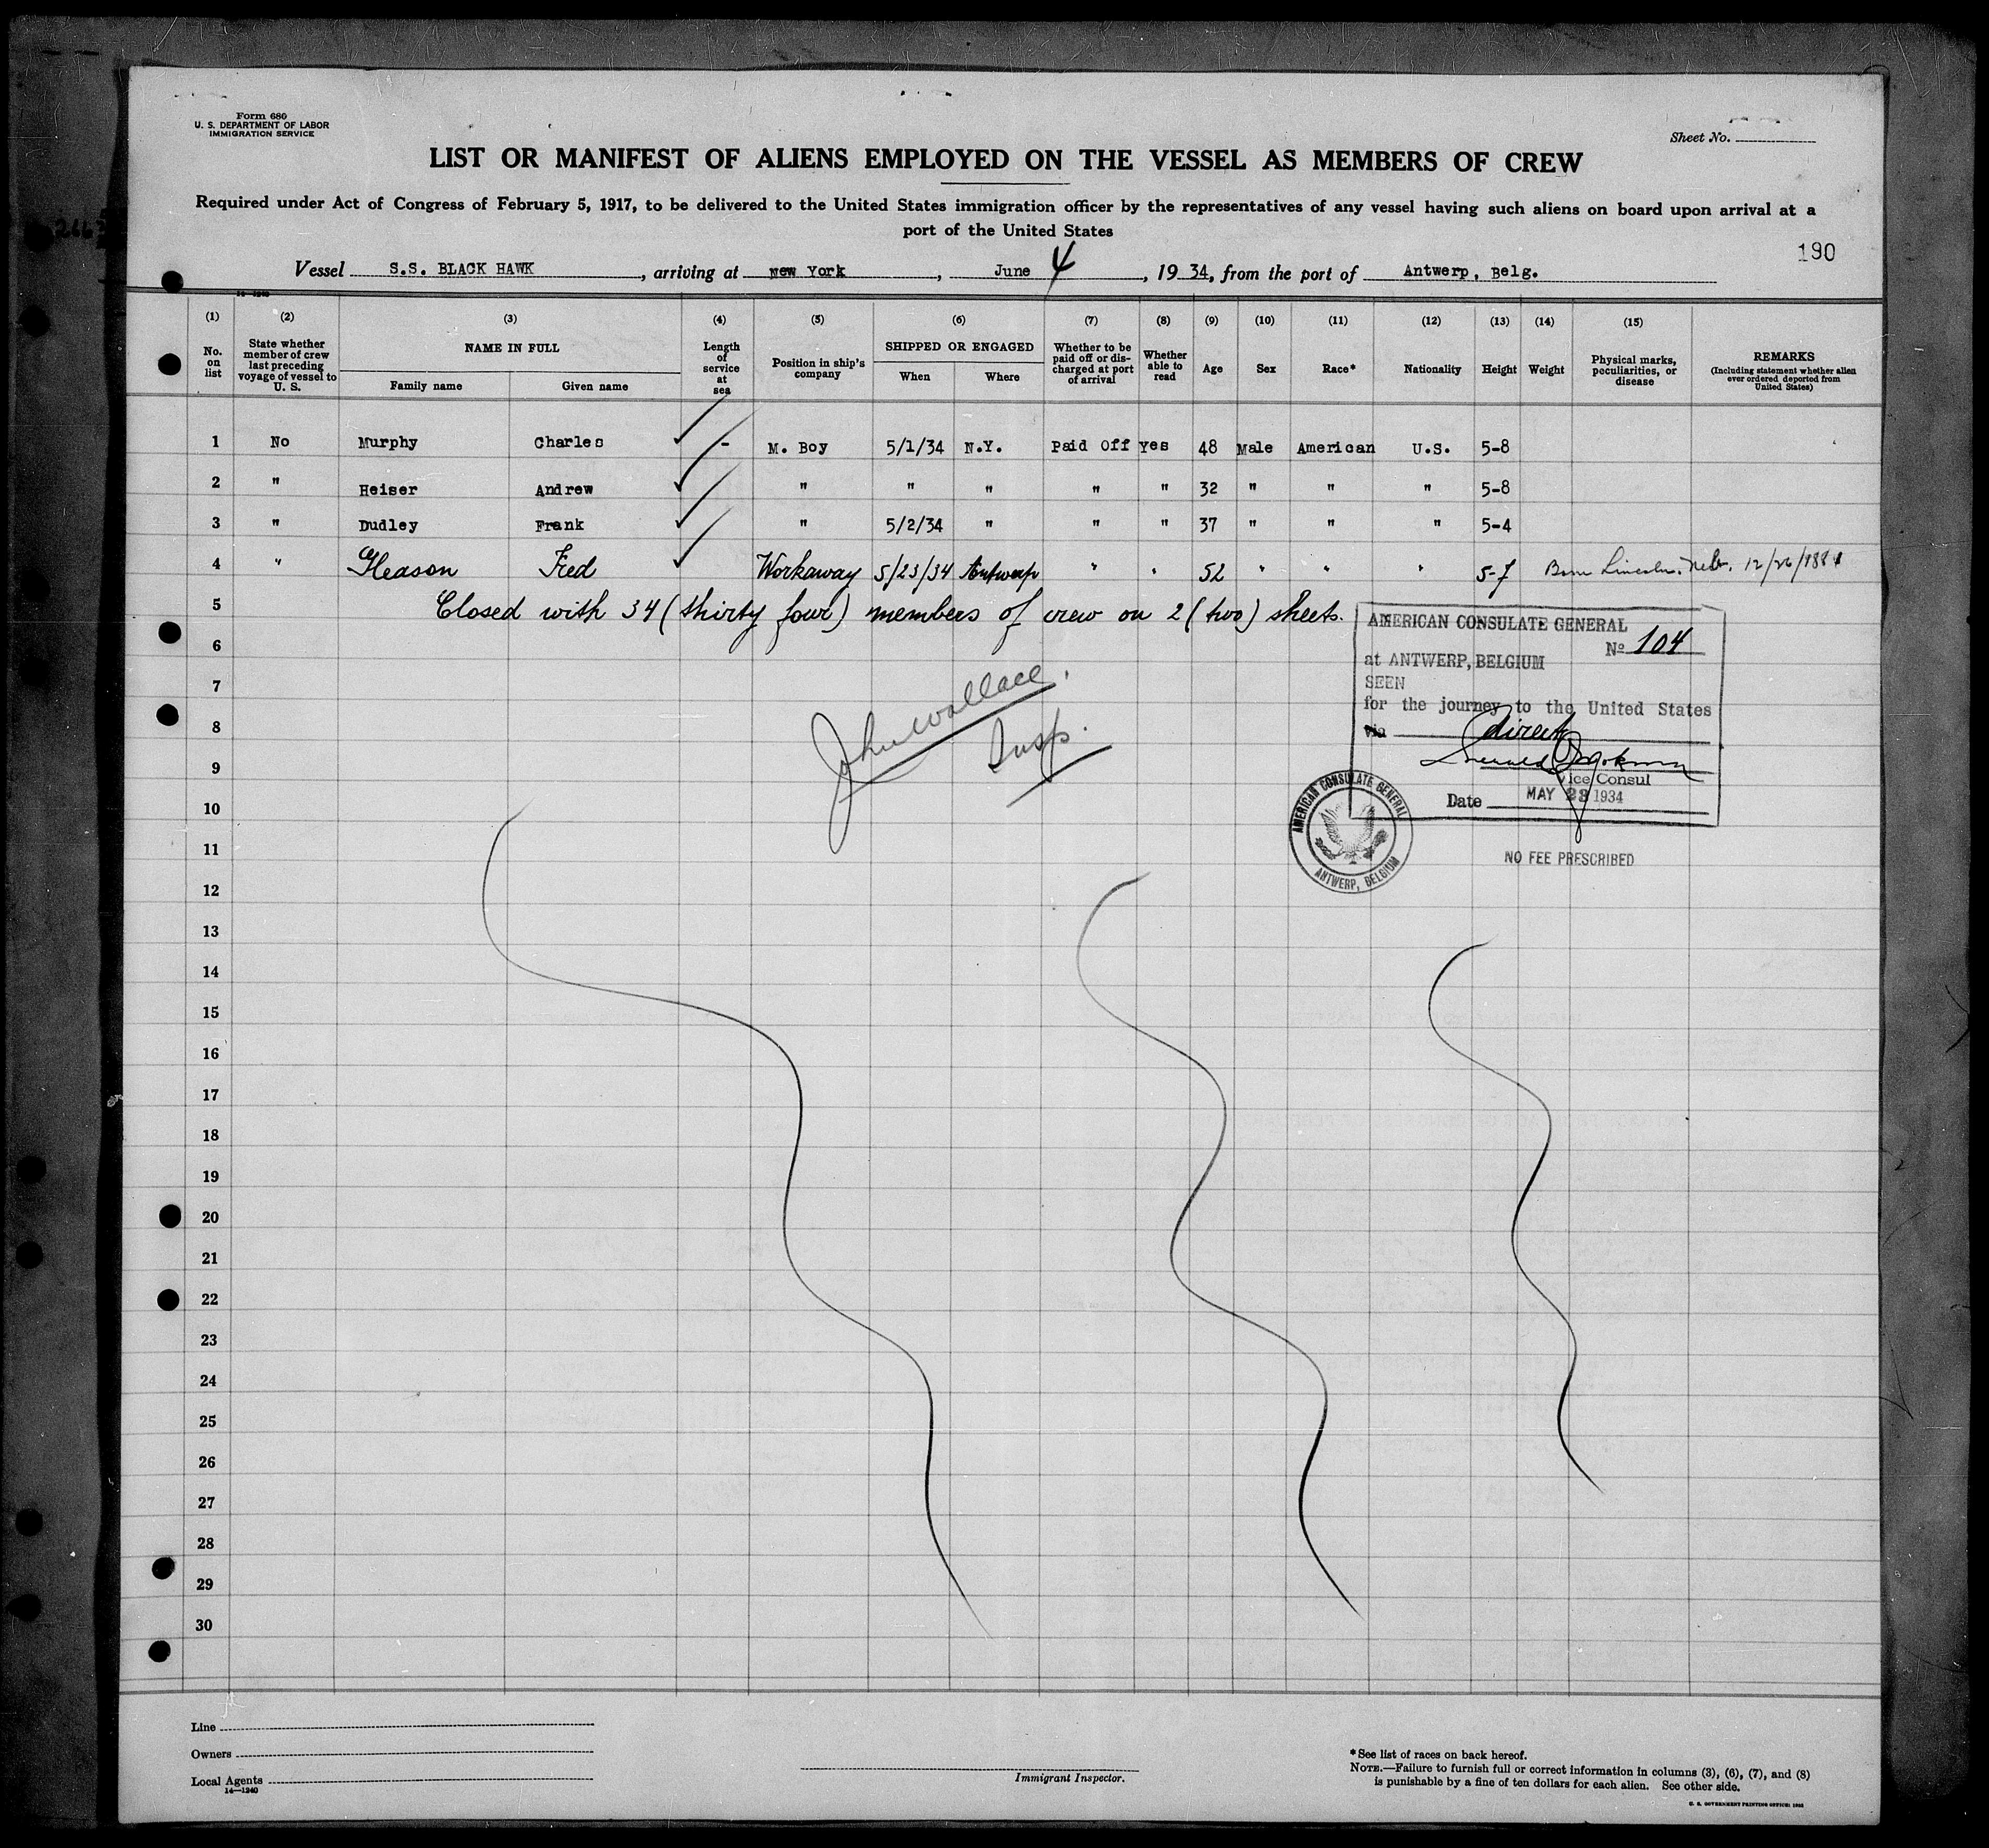 Form 680
U. S. DEPARTMENT OF LABOR
IMMIGRATION SERVICE
Sheet No.
LIST OR MANIFEST OF ALIENS EMPLOYED ON THE VESSEL AS MEMBERS OF CREW
Required under Act of Congress of February 5, 1917, to be delivered to the United States immigration officer by the representatives of any vessel having such aliens on board upon arrival at a
port of the United States
190
Vessel S.S. BLACK HAWK, arriving at New York, June 4, 1934, from the port of Antwerp, Belg.
14—1240
(1) (2) (3) (4) (5) (6) (7) (8) (9) (10) (11) (12) (13) (14) (15)
No. on list State whether member of crew last preceding voyage of vessel to U. S. NAME IN FULL Family name Given name Length of service at sea Position in ship's company SHIPPED OR ENGAGED When Where Whether to be paid off or discharged at port of arrival Whether able to read Age Sex Race* Nationality Height Weight Physical marks, peculiarities, or disease REMARKS (Including statement whether alien ever ordered deported from United States)
1 No Murphy Charles - M. Boy 5/1/34 N.Y. Paid Off Yes 48 Male American U.S. 5-8
2 " Heiser Andrew " " " " " 32 " " " 5-8
3 " Dudley Frank " 5/2/34 " " " 37 " " " 5-4
4 " Gleason Fred Workaway 5/23/34 Antwerp " " 52 " " " 5-7 Born Lincoln, Nebr. 12/26/1881
5 Closed with 34 (thirty four) members of crew on 2 (two) sheets.
6
7
8
9
10
11
12
13
14
15
16
17
18
19
20
21
22
23
24
25
26
27
28
29
30
John Wallace.
Insp.
AMERICAN CONSULATE GENERAL
No 104
at ANTWERP, BELGIUM
SEEN
for the journey to the United States
via direct
Vice Consul
Date MAY 23 1934
AMERICAN CONSULATE GENERAL
ANTWERP, BELGIUM
NO FEE PRESCRIBED
Line
Owners
Local Agents
14—1240
Immigrant Inspector.
*See list of races on back hereof.
NOTE.—Failure to furnish full or correct information in columns (3), (6), (7), and (8)
is punishable by a fine of ten dollars for each alien. See other side.